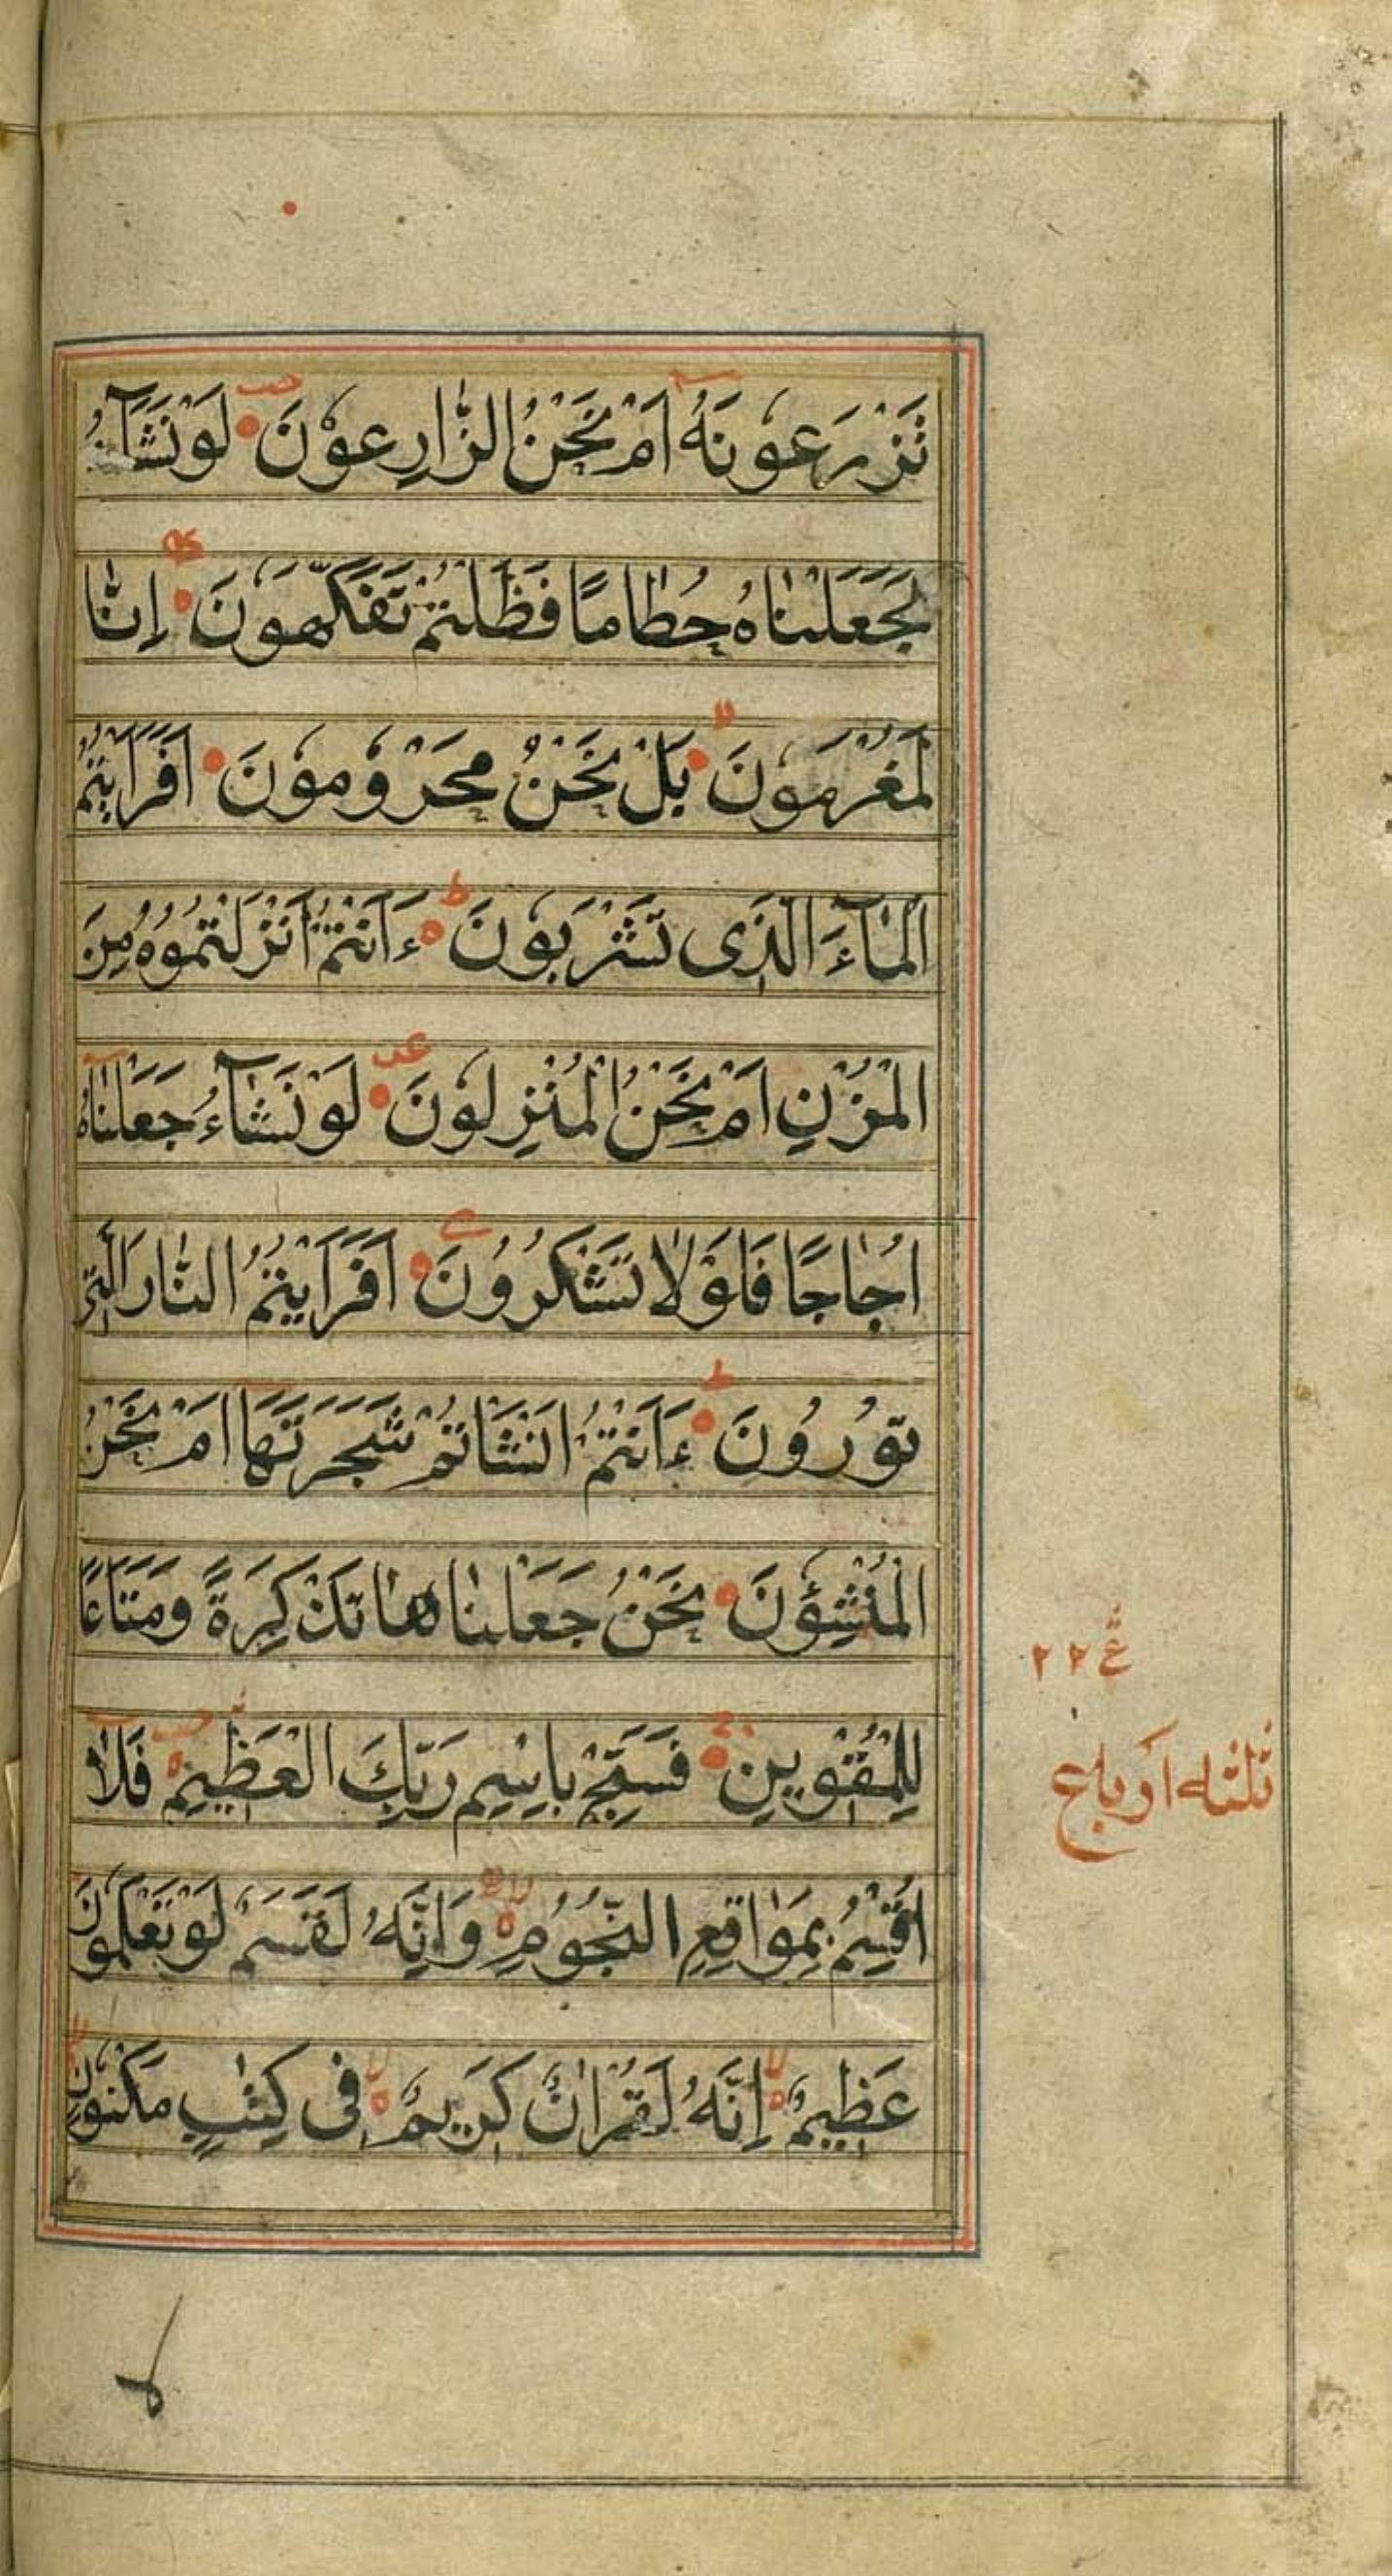 تَزْرَعُونَهُ اَمْ نَحْنُ الزّٰارِعُوْنَ لَوْ نَشَآءُ
لَجَعَلْنٰاهُ حُطٰامًا فَظَلْتُمْ تَفَكَّهُونَ اِنّٰا
لَمُغْرَمُونَ بَلْ نَحْنُ مَحْرُوْمُوْنَ اَفَرَاَيْتُمُ
الْمٰآءَ الَّذِى تَشْرَبُوْنَ ءَاَنْتُمْ اَنْزَلْتُمُوُهُ مِنَ
الْمُزْنِ اَمْ نَحْنُ الْمُنْزِلُوْنَ لَوْ نَشٰآءُ جَعَلْنٰاهُ
اُجٰاجًا فَلَوْلٰا تَشْكُرُوُنَ اَفَرَاَيْتُمُ النّٰارَ الَّتِى
تُوْرُوُنَ ءَاَنْتُمْ اَنْشَاْتُمْ شَجَرَتَهٰا اَمْ نَحْنُ
الْمُنْشِئُوْنَ نَحْنُ جَعَلْنٰاهٰا تَذْكِرَةً وَمَتَاعًا
لِلْمُقْوِينَ فَسَبِّحْ بِاسْمِ رَبِّكَ الْعَظِيمِ فَلٰا
اُقْسِمُ بِمَوٰاقِعِ النُّجُوُمِ وَاِنَّهُ لَقَسَمٌ لَوْ تَعْلَمُوْنَ
عَظِيمٌ اِنَّهُ لَقُرْاٰنٌ كَرِيمٌ فِى كِتٰبٍ مَكْنُوْنٍ
ع ٢٢
ثلثه اوباع